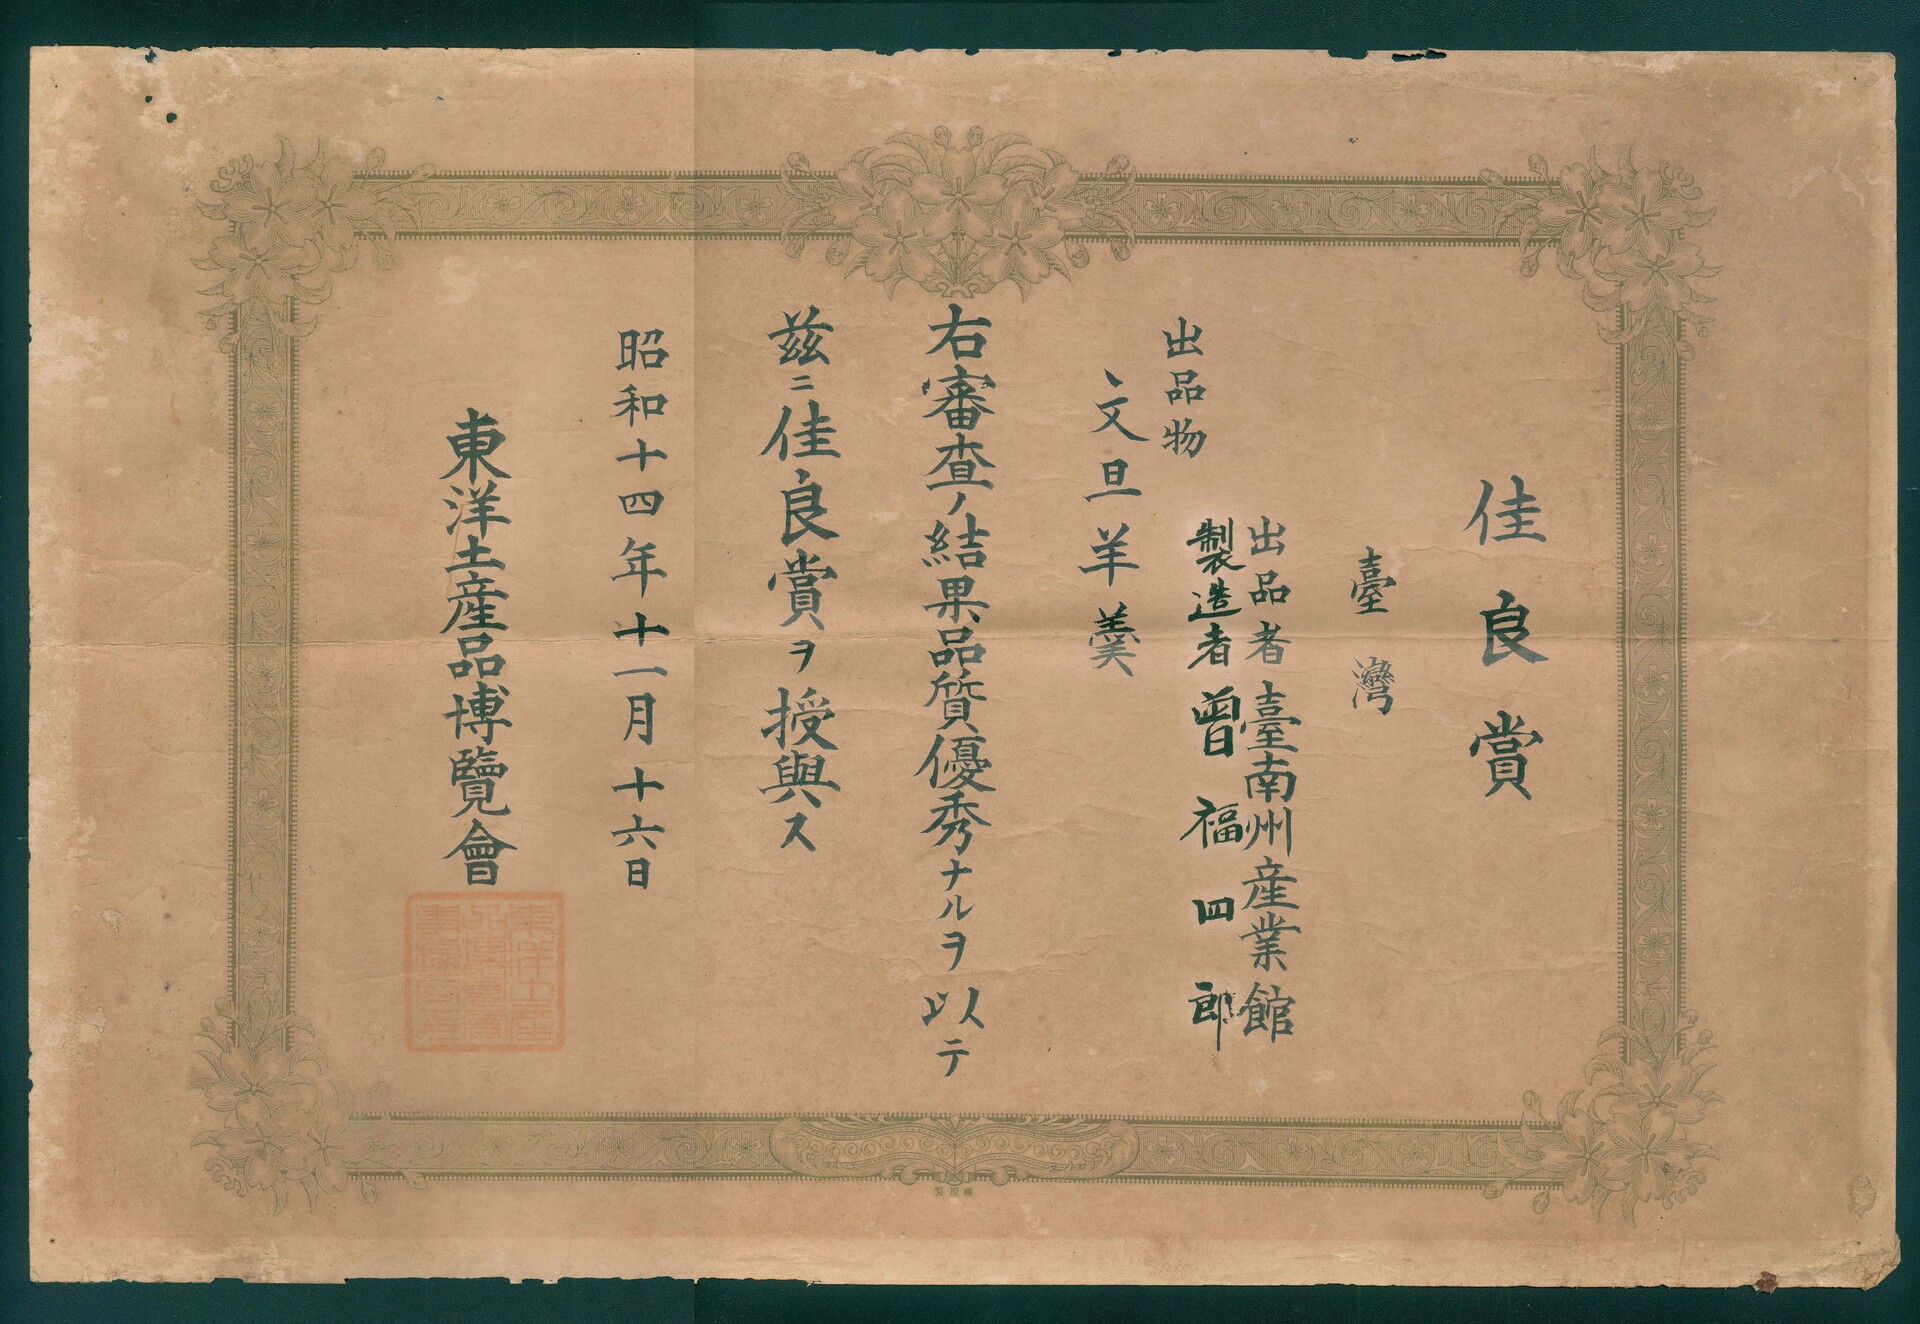 佳良賞
臺灣
出品者臺南州産業館
製造者曾福四郎
出品物
、文旦羊羹
右審査ノ結果品質優秀ナルヲ以テ
茲ニ佳良賞ヲ授與ス
昭和十四年十一月十六日
東洋土産品博覽會